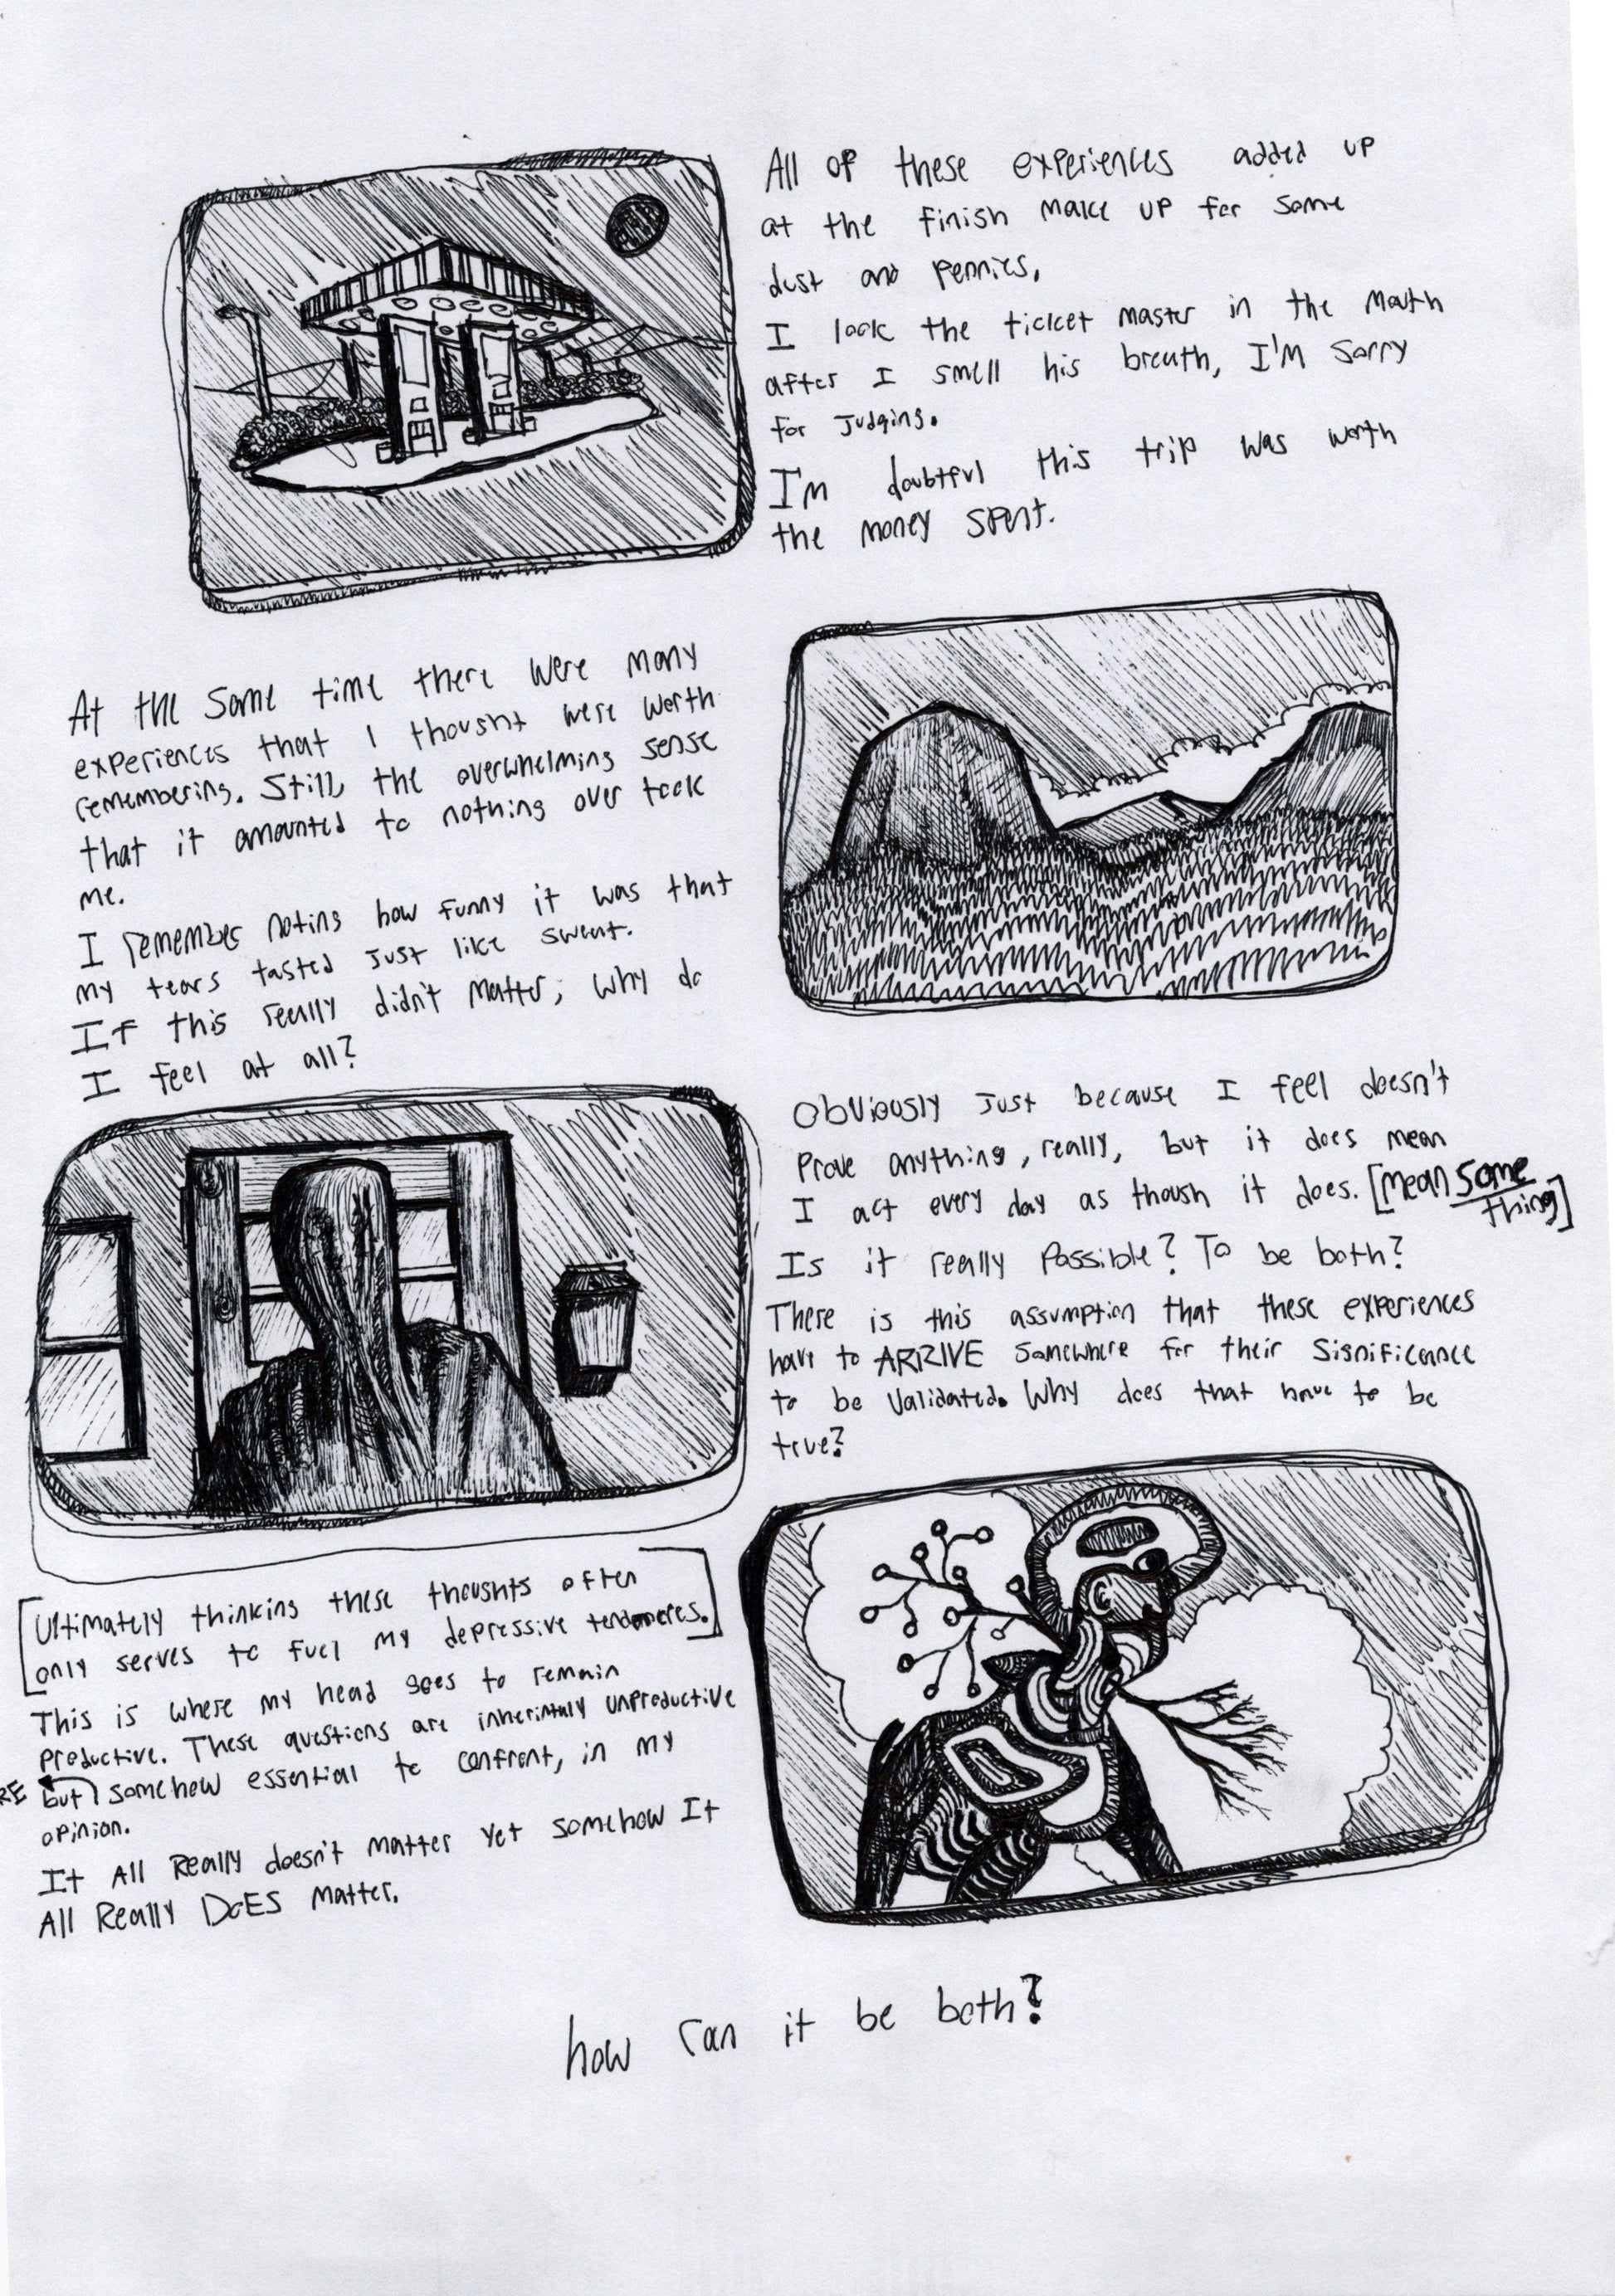 All of these experiences added up
at the finish make up for some
dust and pennies,
I look the ticket master in the mouth
after I smell his breath, I'm sorry
for judging.
I'm doubtful this trip was worth
the money spent.
At the same time there were many
experiences that I thought were worth
remembering. Still, the overwhelming sense
that it amounted to nothing over took
me.
I remember noting how funny it was that
my tears tasted just like sweat.
If this really didn't matter; why do
I feel at all?
Obviously just because I feel doesn't
prove anything, really, but it does mean
I act every day as though it does. [mean some
thing]
Is it really possible? To be both?
There is this assumption that these experiences
have to ARRIVE somewhere for their significance
to be validated. Why does that have to be
true?
[Ultimately thinking these thoughts often
only serves to fuel my depressive tendencies.]
This is where my head goes to remain
productive. These questions are inherintuly unproductive
RE but somehow essential to confront, in my
opinion.
It All Really doesn't matter yet somehow It
All Really DoES matter.
how can it be both?